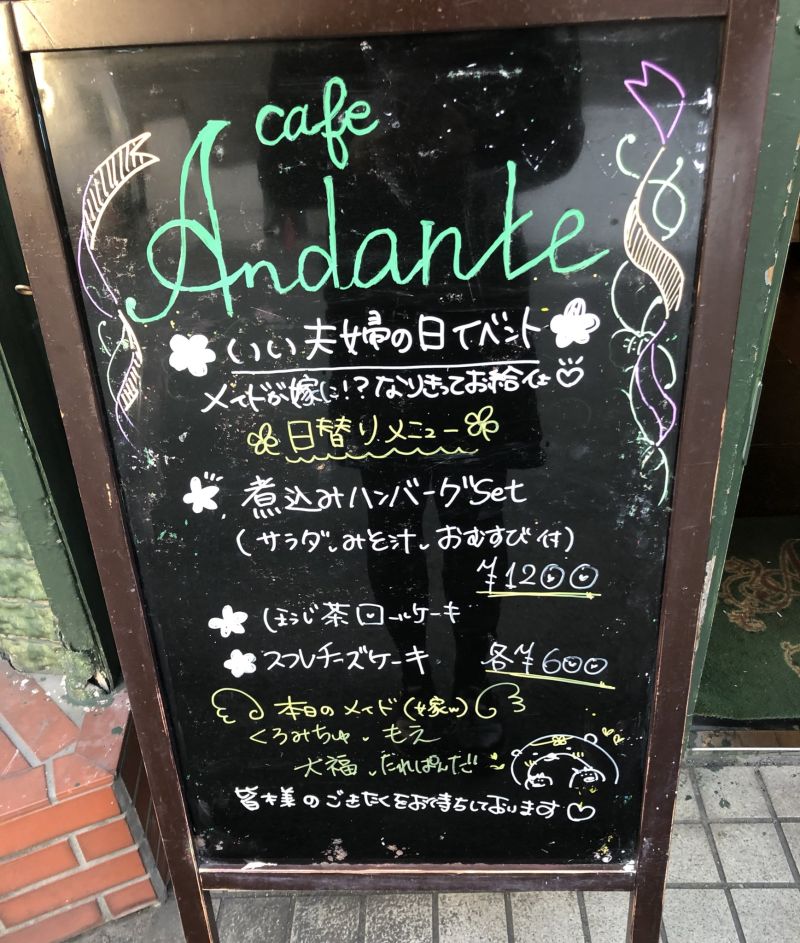 cafe
Andante
いい夫婦の日イベント
メイドが嫁に!?なりきってお給仕♡
日替りメニュー
煮込みハンバーグSet
(サラダ、みそ汁、おむすび付)
¥1200
ほうじ茶ロールケーキ
スフレチーズケーキ 各¥600
本日のメイド(嫁w)
くろみちゅ、もえ
大福、たれぱんだ
皆様のごきたくをお待ちしております♡